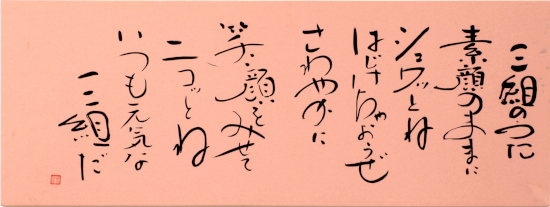 三組のうた
素顔のままに
シュワッとね
はじけちゃおうぜ
さわやかに
笑顔をみせて
ニコッとね
いつも元気な
三組だ